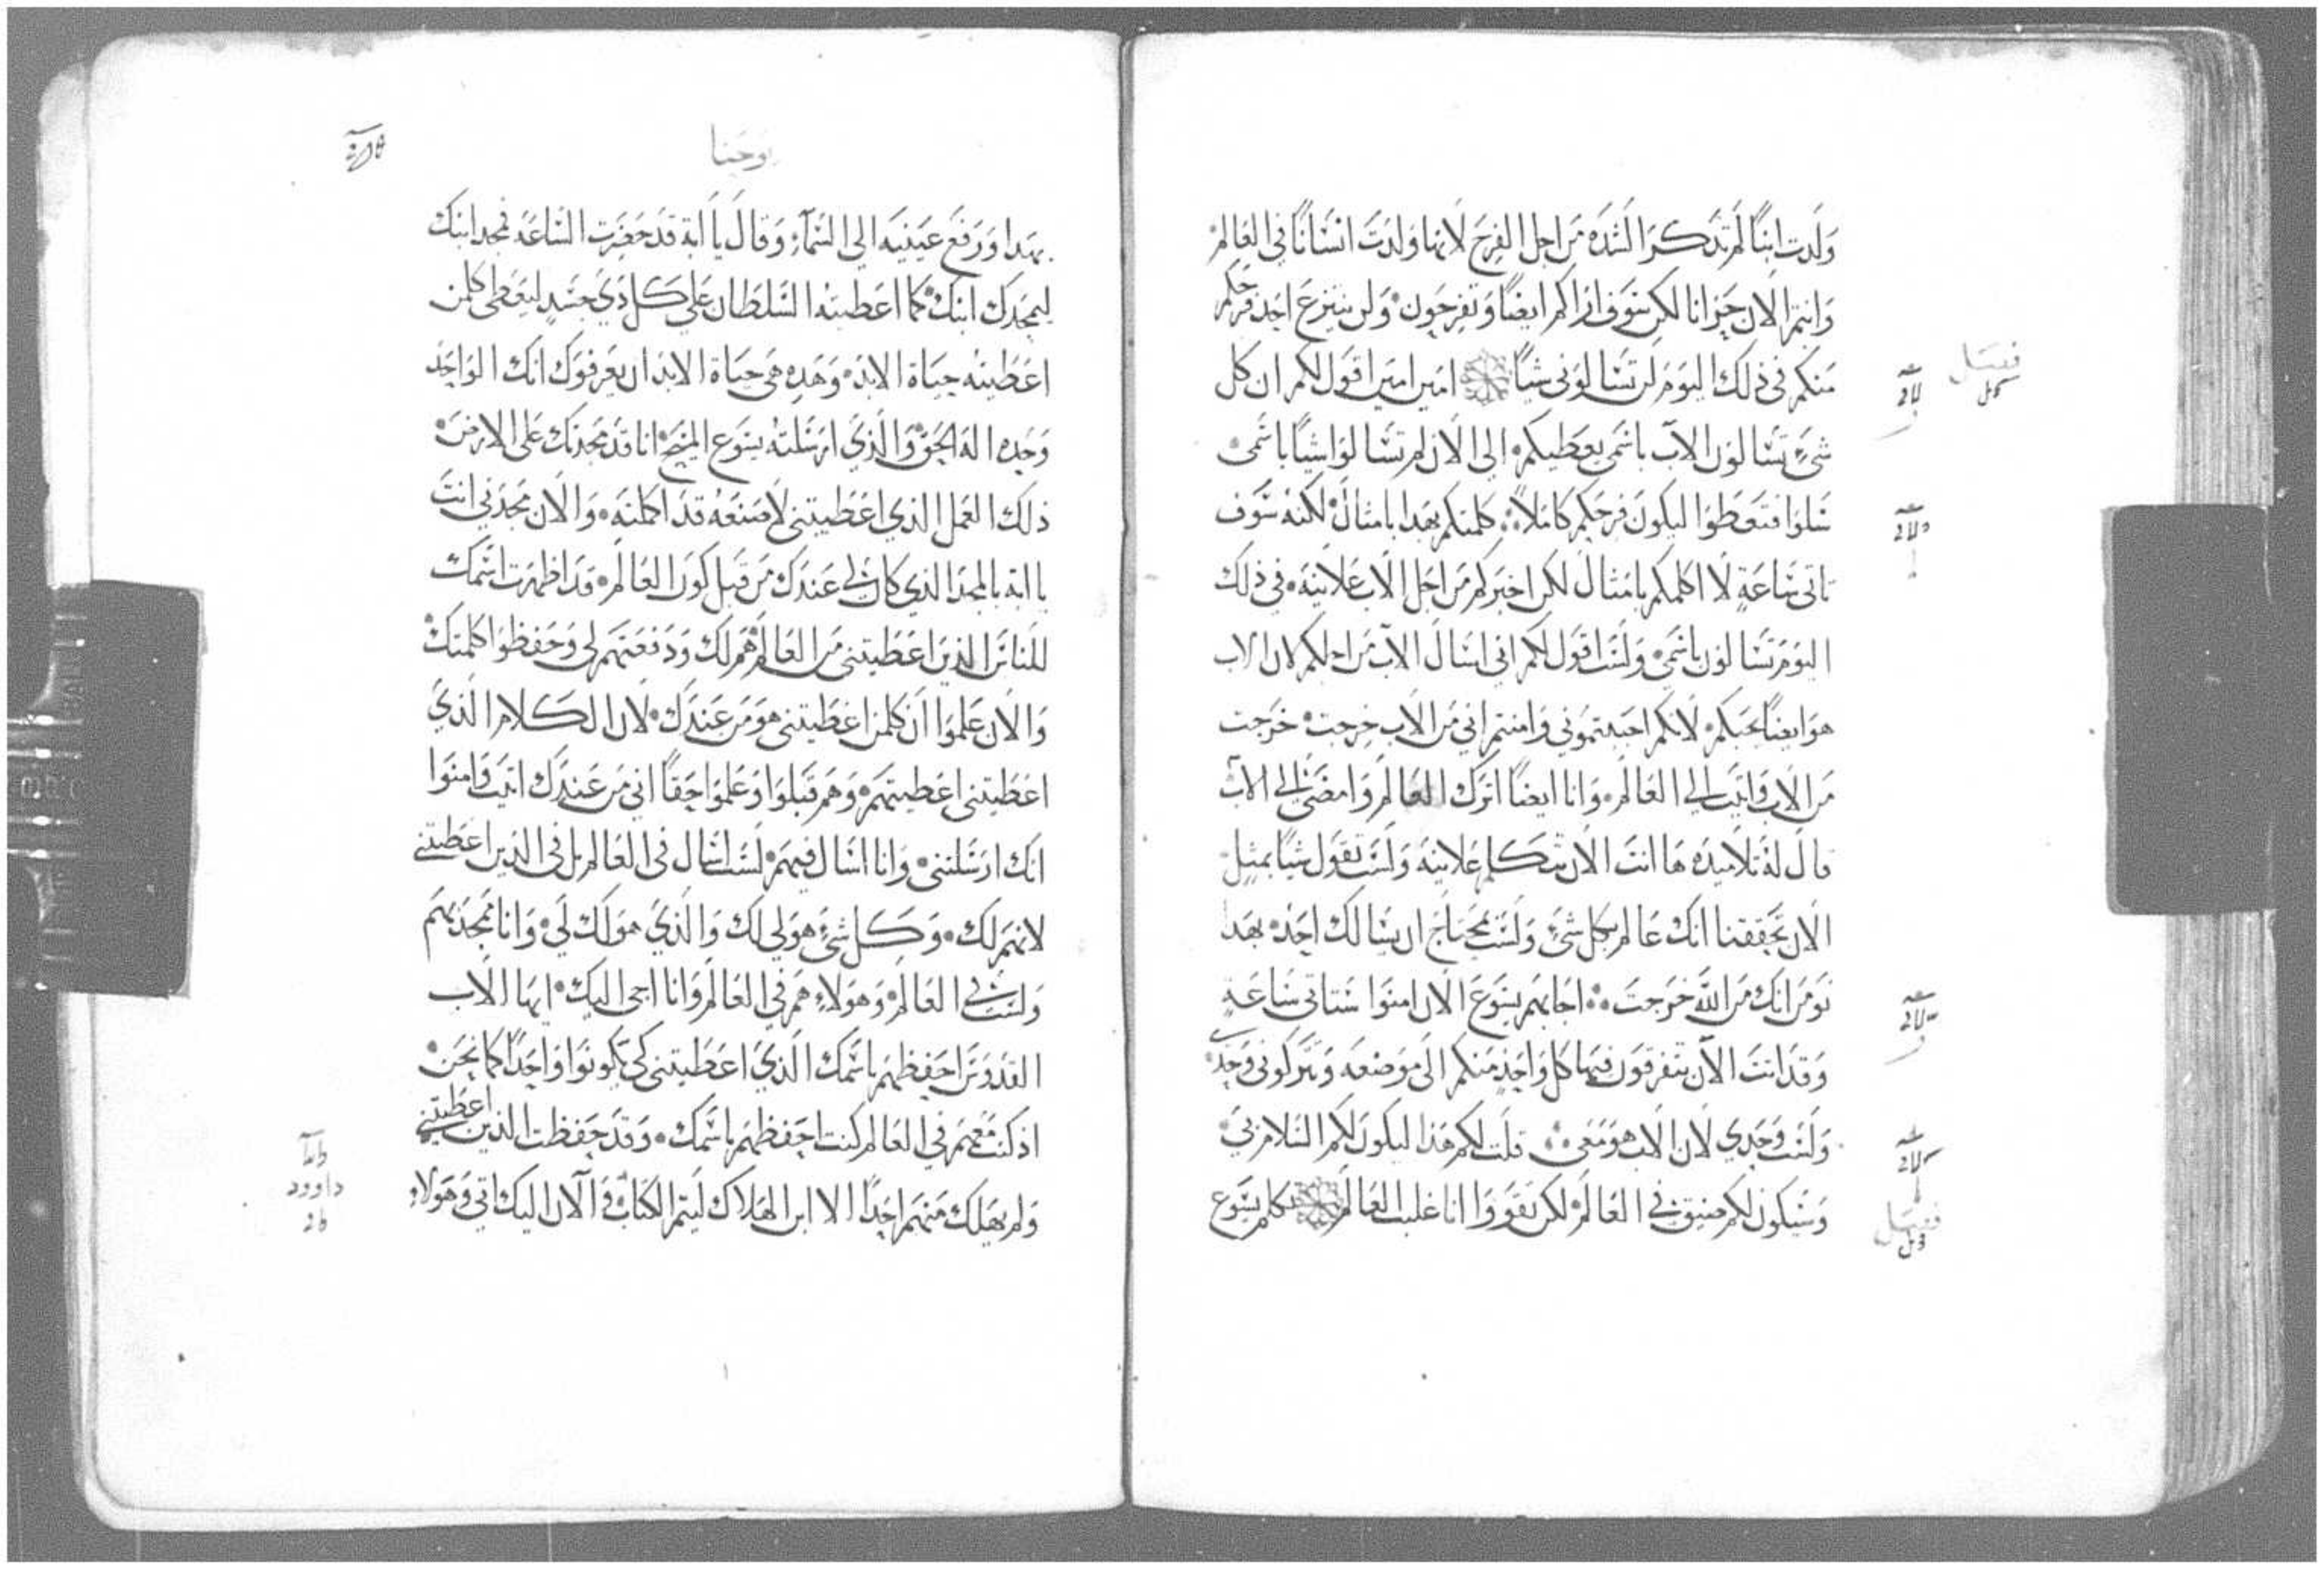 ولدت ابنًا لم تدكر الشده من اجل الفرح لانها ولدت انسانًا في العالم
وانتم الان حزانا لكن سوف اراكم ايضًا وتفرحون ولن ينزع احد فرحكم
منكم في ذلك اليوم لن تسالوني شيًا امين امين اقول لكم ان كل
شيءٍ تسالون الآب باسمي يعطيكم الى الان لم تسالوا شيًا باسمي
سلوا فتعطوا ليكون فرحكم كاملًا كلمتكم بهدا بامثال لكنه سوف
تاتي ساعةٍ لا اكلمكم بامثال لكن اخبركم من اجل الاب علانيه في ذلك
اليوم تسالون باسمي ولست اقول لكم اني اسال الآب من اجلكم لان الاب
هو ايضًا يحبكم لانكم احببتموني وامنتم اني من الاب خرجت خرجت
من الاب واتيت الي العالم وانا ايضًا اترك العالم وامضي الي الآب
قال له تلاميده ها انت الان تتكلم علانيه ولست تقول شيًا بمثل
الان تحققنا انك عالم بكل شيء ولست بمحتاج ان يسالك احد بهدا
نومن انك من الله خرجت اجابهم يسوع الان امنوا ستاتي ساعةٍ
وقد اتت الآن يتفرقون فيها كل واحدٍ منكم الى موضعه وتتركوني وحدي
ولست وحدي لان الاب هو معي قلت لكم هذا ليكون لكم السلام بي
وسيكون لكم ضيق في العالم لكن تقووا انا غلبت العالم تكلم يسوع
فصل
فصل
يوحنا
بهدا ورفع عينيه الي السمآء وقال يا ابه قد حضرت الساعه فمجد ابنك
ليمجدك ابنك كما اعطيته السلطان علي كل دي جسدٍ ليعطي كلمن
اعطيته حياة الابد وهده هي حياة الابد ان يعرفوك انك الواحد
وحده اله الحق والذي ارسلته يسوع المسيح انا قد مجدتك على الارض
ذلك العمل الذي اعطيتني لاصنعه قد اكملته والان مجدني انت
يا ابه بالمجد الذي كان لي عندك من قبل كون العالم قد اظهرت اسمك
للناس الذين اعطيتني من العالم هم لك ودفعتهم لي وحفظوا كلمتك
والان علموا ان كلمن اعطيتني هو من عندك لان الكلام الذي
اعطيتني اعطيتهم وهم قبلوا وعلموا حقًا اني من عندك اتيت وامنوا
انك ارسلتني وانا اسال فيهم لست اسال في العالم بل في الذين اعطيتني
لانهم لك وكل شيء هو لي لك والذي هو لك لي وانا ممجد بهم
ولست في العالم وهولاء هم في العالم وانا اجي اليك ايها الاب
القدوس احفظهم باسمك الذي اعطيتني كي يكونوا واحدًا كما نحن
اذ كنت معهم في العالم كنت احفظهم باسمك وقد حفظت الذين اعطيتني
ولم يهلك منهم احدًا الا ابن الهلاك ليتم الكتاب والان اليك اتي وهولاء
داوود